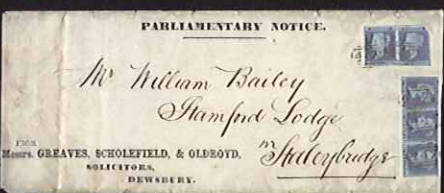 PARLIAMENTARY NOTICE.
Mr William Bailey
Stamford Lodge
nr Staleybridge
FROM
Messrs. GREAVES, SCHOLEFIELD, & OLDROYD,
SOLICITORS,
DEWSBURY.